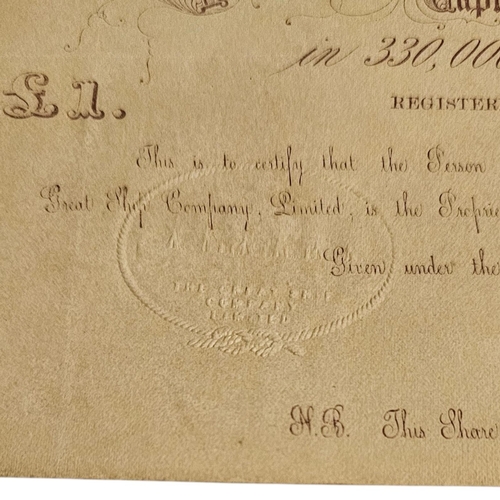 Capi
in 330,000
£1.
REGISTER
This is to certify that the Person
Great Ship Company, Limited, is the Proprie
Given under the
THE GREAT SHIP
COMPANY
LIMITED
N.B. This Share